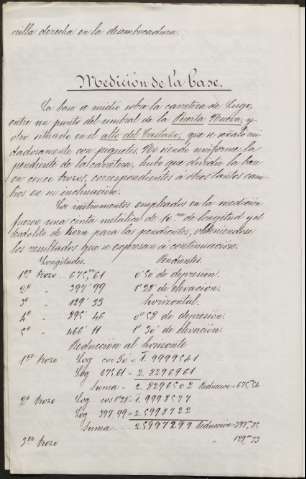 orilla derecha en la desembocadura.
Medición de la Base.
La base se midió sobre la carretera de Lugo,
entre un punto del umbral de la Puerta Nueva, y
otro situado en el alto del
dadosamente con piquetes. No siendo uniforme la
pendiente de la carretera, hubo que dividir la base
en cinco trozos, correspondientes á otros tantos cam-
bios en su inclinación.
Los instrumentos empleados en la medición
fueron una cinta metálica de 10 ms de longitud y el
teodolito de para las pendientes, obteniéndose
los resultados que se expresan á continuación.
Longitudes. Pendientes
1er trozo 675,m01 0°50 de depresión.
2º " 397,99 1°28 de elevación.
3º " 129,33 horizontal.
4º " 295,46 0°58 de depresión.
5º " 466,11 1°30' de elevación.
Reducción al horizonte
1er trozo Log cos 50 = 1,9999541
Log 675,01 = 2,8296961
Suma = 2,8296502 Reducción = 675,
2º trozo Log cos 1°28 = 1,9998577
Log 397,99 = 2,5998722
Suma 2,5997299 Reducción = 397,
3er trozo " 129,33